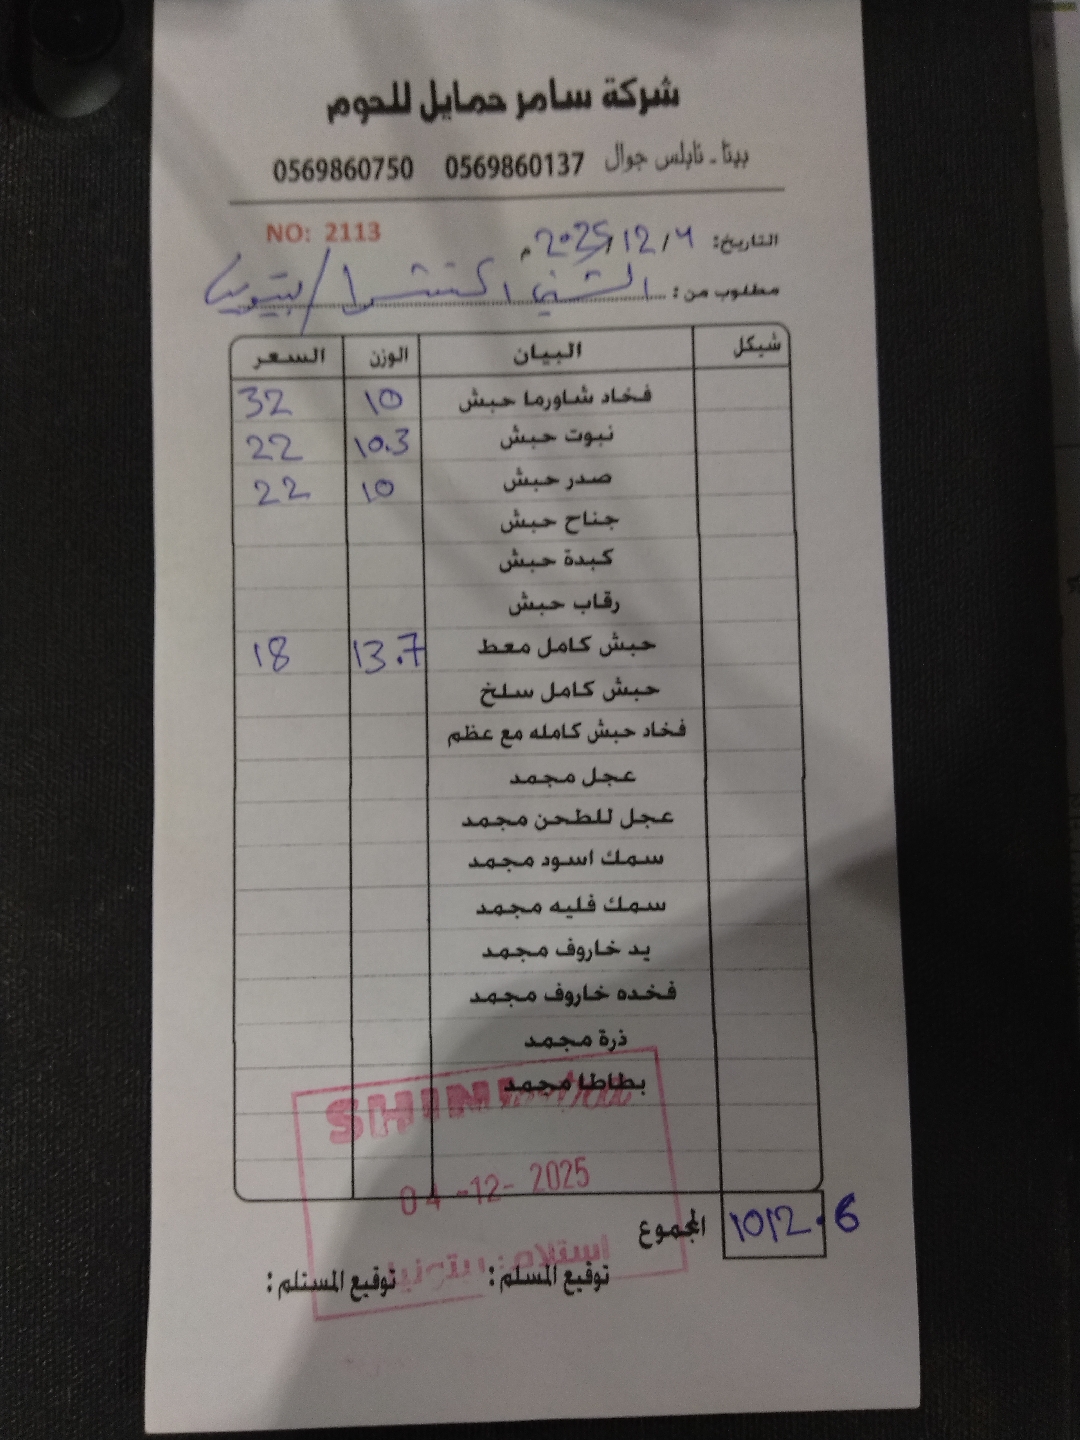 شركة سامر حمايل للحوم
بيتا - نابلس جوال 0569860137 0569860750
NO: 2113
التاريخ: 4/12/2025 م
مطلوب من: الشني اكسترا / بيتونيا
شيكل البيان الوزن السعر
فخاد شاورما حبش 10 32
نبوت حبش 10.3 22
صدر حبش 10 22
جناح حبش
كبدة حبش
رقاب حبش
حبش كامل معط 13.7 18
حبش كامل سلخ
فخاد حبش كامله مع عظم
عجل مجمد
عجل للطحن مجمد
سمك اسود مجمد
سمك فليه مجمد
يد خاروف مجمد
فخده خاروف مجمد
ذرة مجمد
بطاطا مجمد
SHINI
04-12-2025
استلام بيتونيا
المجموع 1012.6
توقيع المسلم: توقيع المستلم: